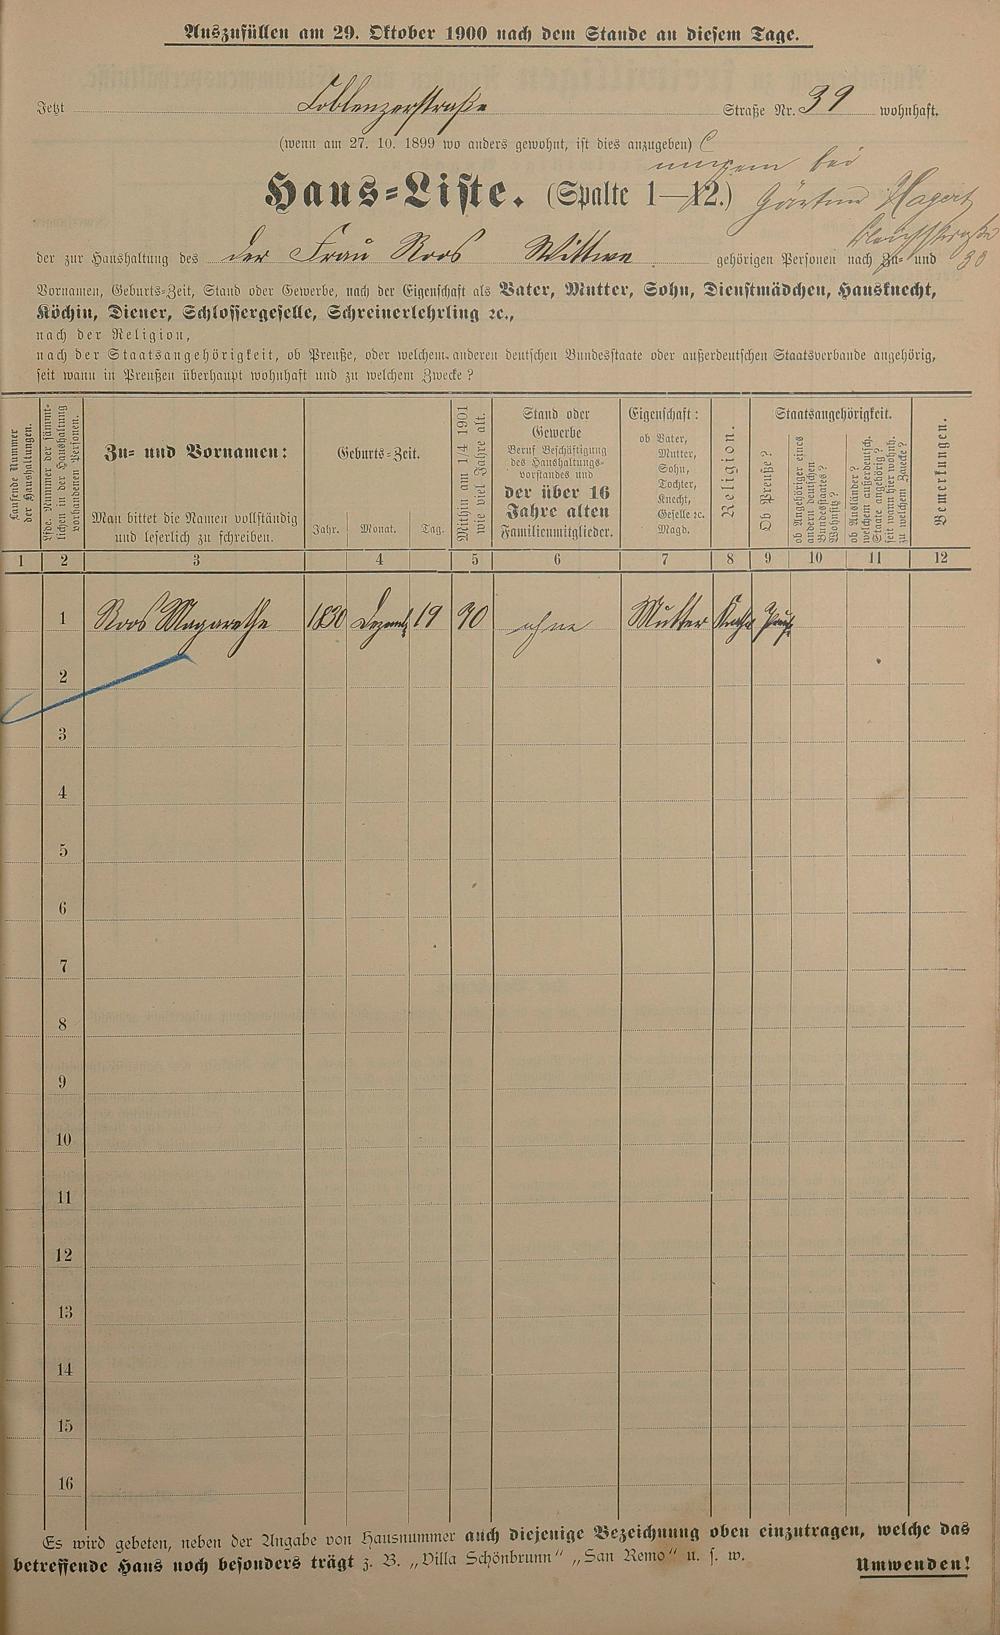 Auszufüllen am 29. Oktober 1900 nach dem Stande an diesem Tage.
Jetzt Coblenzerstraße Straße Nr. 39 wohnhaft.
(wenn am 27. 10. 1899 wo anders gewohnt, ist dies anzugeben)
bei
Haus-Liste. (Spalte 1—12.) Gärtner
der zur Haushaltung des der Frau Roos Wittwe gehörigen Personen nach Zu- und 30
Vornamen, Geburts-Zeit, Stand oder Gewerbe, nach der Eigenschaft als Vater, Mutter, Sohn, Dienstmädchen, Hausknecht,
Köchin, Diener, Schlossergeselle, Schreinerlehrling ꝛc.,
nach der Religion,
nach der Staatsangehörigkeit, ob Preuße, oder welchem anderen deutschen Bundesstaate oder außerdeutschen Staatsverbande angehörig,
seit wann in Preußen überhaupt wohnhaft und zu welchem Zwecke?
Laufende Nummer
der Haushaltungen.
Lfde. Nummer der sämmt-
lichen in der Haushaltung
vorhandenen Personen.
Zu- und Vornamen:
Man bittet die Namen vollständig
und leserlich zu schreiben.
Geburts-Zeit.
Jahr. Monat. Tag.
Mithin am 1/4 1901
wie viel Jahre alt.
Stand oder
Gewerbe
Beruf Beschäftigung
des Haushaltungs-
vorstandes und
der über 16
Jahre alten
Familienmitglieder.
Eigenschaft:
ob Vater,
Mutter,
Sohn,
Tochter,
Knecht,
Geselle ꝛc.
Magd.
Religion.
Staatsangehörigkeit.
Ob Preuße?
ob Angehöriger eines
andern deutschen
Bundesstaates?
Wohnsitz?
ob Ausländer?
welchem außerdeutsch.
Staate angehörig?
seit wann hier wohnh.
zu welchem Zwecke?
Bemerkungen.
1 2 3 4 5 6 7 8 9 10 11 12
1 Roos Magarethe 1830 Dezemb. 19 70 ohne Mutter Kath. Preuß.
2
3
4
5
6
7
8
9
10
11
12
13
14
15
16
Es wird gebeten, neben der Angabe von Hausnummer auch diejenige Bezeichnung oben einzutragen, welche das
betreffende Haus noch besonders trägt z. B. „Villa Schönbrunn“ „San Remo“ u. s. w.
Umwenden!